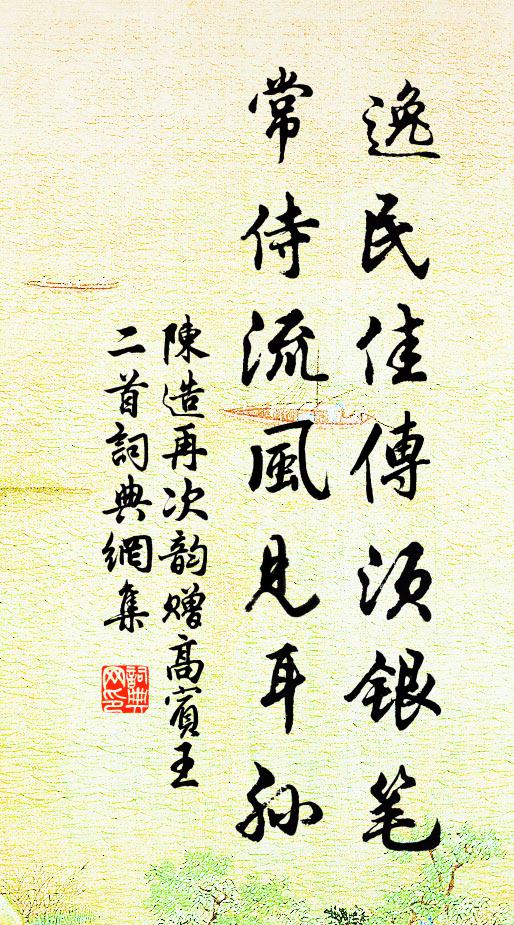 逸民佳傳須銀笔
常侍流風見耳孫
陳造再次韵赠高賓王
二首詞典網集
詞典网印